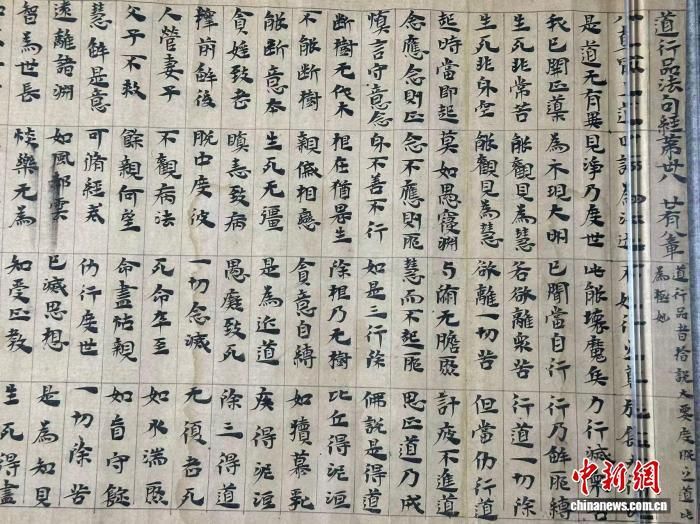 道行品法句經第卅八 廿有八章 道行品者旨說大要度脫之道此為極妙
是道无有異 見淨乃度世 此能壞魔兵 力行滅
我已開正道 為示現大明 已聞當自行 行乃解邪縛
生死非常苦 能觀見為慧 若欲離眾苦 行道一切除
生死非身空 能觀見為慧 欲離一切苦 但當仂行道
起時當即起 莫如愚覆淵 与術无瞻聚 計疲不進道
念應念則正 念不應則邪 慧而不起邪 思正道乃成
慎言守意念 身不善不行 如是三行除 佛說是得道
斷樹无伐木 根在猶復生 除根乃无樹 比丘得泥洹
不能斷樹 親戚相戀 貪意自縛 如犢慕乳
能斷意本 生死无彊 是為近道 疾得泥洹
貪婬致老 瞋恚致病 愚癡致死 除三得道
釋前解後 脫中度彼 一切念滅 无復老死
人營妻子 不觀病法 死命卒至 如水湍聚
父子不救 餘親何望 命盡怙親 如盲守錠
慧解是意 可脩經戒 仂行度世 一切除苦
遠離諸淵 如風却雲 已滅思想 是為知見
智為世長 惔樂无為 知受正教 生死得盡
中新网
chinanews.com